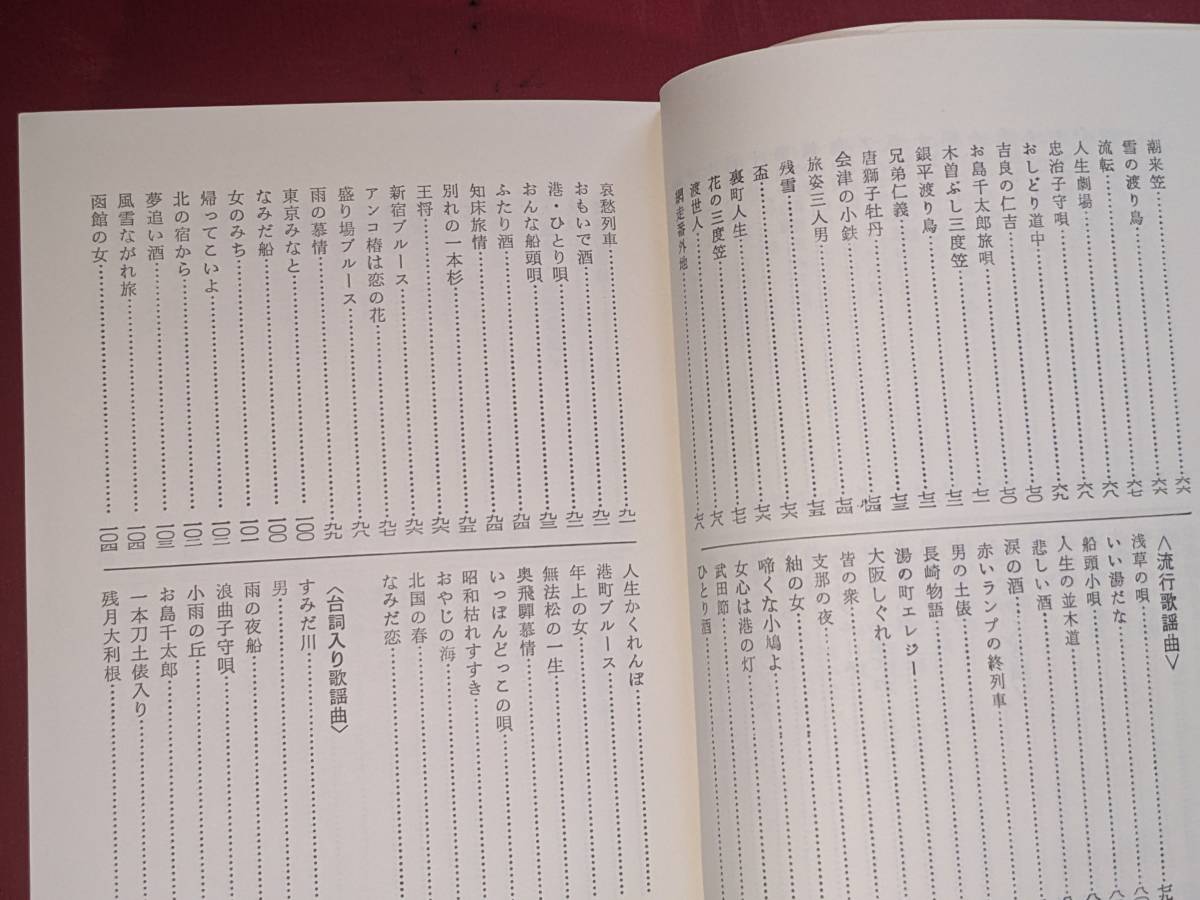 潮来笠……六六
雪の渡り鳥……六六
流転……六七
人生劇場……六八
忠治子守唄……六八
おしどり道中……六九
吉良の仁吉……七〇
お島千太郎旅唄……七〇
木曽ぶし三度笠……
銀平渡り鳥……
兄弟仁義……七三
唐獅子牡丹……七三
会津の小鉄……七四
旅姿三人男……七四
残雪……七五
盃……七六
裏町人生……七六
花の三度笠……七七
渡世人……七八
網走番外地……七八
〈流行歌謡曲〉
浅草の唄……
いい湯だな……
船頭小唄……
人生の並木道……
悲しい酒……
涙の酒……
赤いランプの終列車……
男の土俵……
長崎物語……
湯の町エレジー……
大阪しぐれ……
皆の衆……
支那の夜……
紬の女……
啼くな小鳩よ……
女心は港の灯……
武田節……
ひとり酒……
哀愁列車……九一
おもいで酒……九二
港・ひとり唄……九二
おんな船頭唄……九三
ふたり酒……九四
知床旅情……九四
別れの一本杉……九五
王将……九六
新宿ブルース……九六
アンコ椿は恋の花……九七
盛り場ブルース……九八
雨の慕情……九九
東京みなと……一〇〇
なみだ船……一〇〇
女のみち……一〇一
帰ってこいよ……一〇二
北の宿から……一〇二
夢追い酒……一〇三
風雪ながれ旅……一〇四
函館の女……一〇四
人生かくれんぼ……
港町ブルース……
年上の女……
無法松の一生……
奥飛騨慕情……
いっぽんどっこの唄……
昭和枯れすすき……
おやじの海……
北国の春……
なみだ恋……
〈台詞入り歌謡曲〉
すみだ川……
男……
雨の夜船……
浪曲子守唄……
小雨の丘……
お島千太郎……
一本刀土俵入り……
残月大利根……